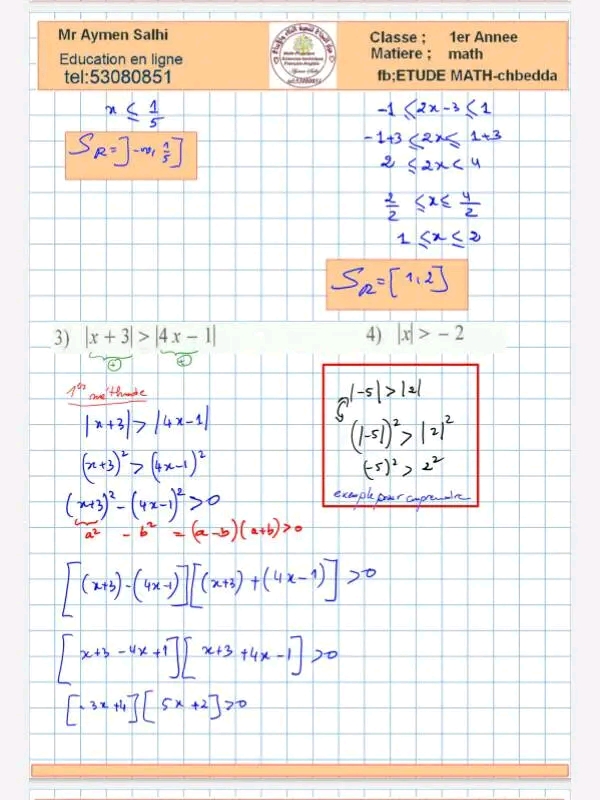 Mr Aymen Salhi
Education en ligne
tel:53080851
Classe ; 1er Annee
Matiere ; math
fb;ETUDE MATH-chbedda
x ≤ 1/5
S_R = ]-∞, 1/5]
-1 ≤ 2x-3 ≤ 1
-1+3 ≤ 2x ≤ 1+3
2 ≤ 2x < 4
2/2 ≤ x ≤ 4/2
1 ≤ x ≤ 2
S_R = [1,2]
3) |x + 3| > |4x - 1|
+ +
1ère méthode
|x+3| > |4x-1|
(x+3)² > (4x-1)²
(x+3)² - (4x-1)² > 0
a² - b² = (a-b)(a+b) > 0
[(x+3)-(4x-1)][(x+3)+(4x-1)] > 0
[x+3-4x+1][x+3+4x-1] > 0
[-3x+4][5x+2] > 0
4) |x| > - 2
|-5| > |2|
(|-5|)² > |2|²
(-5)² > 2²
exemple pour comprendre